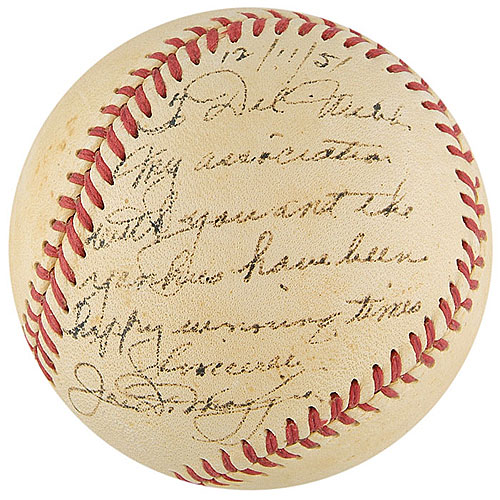 12/11/51
To Del Webb
My association
with you and the
yankies have been
happy winning times
Sincerely
Joe DiMaggio